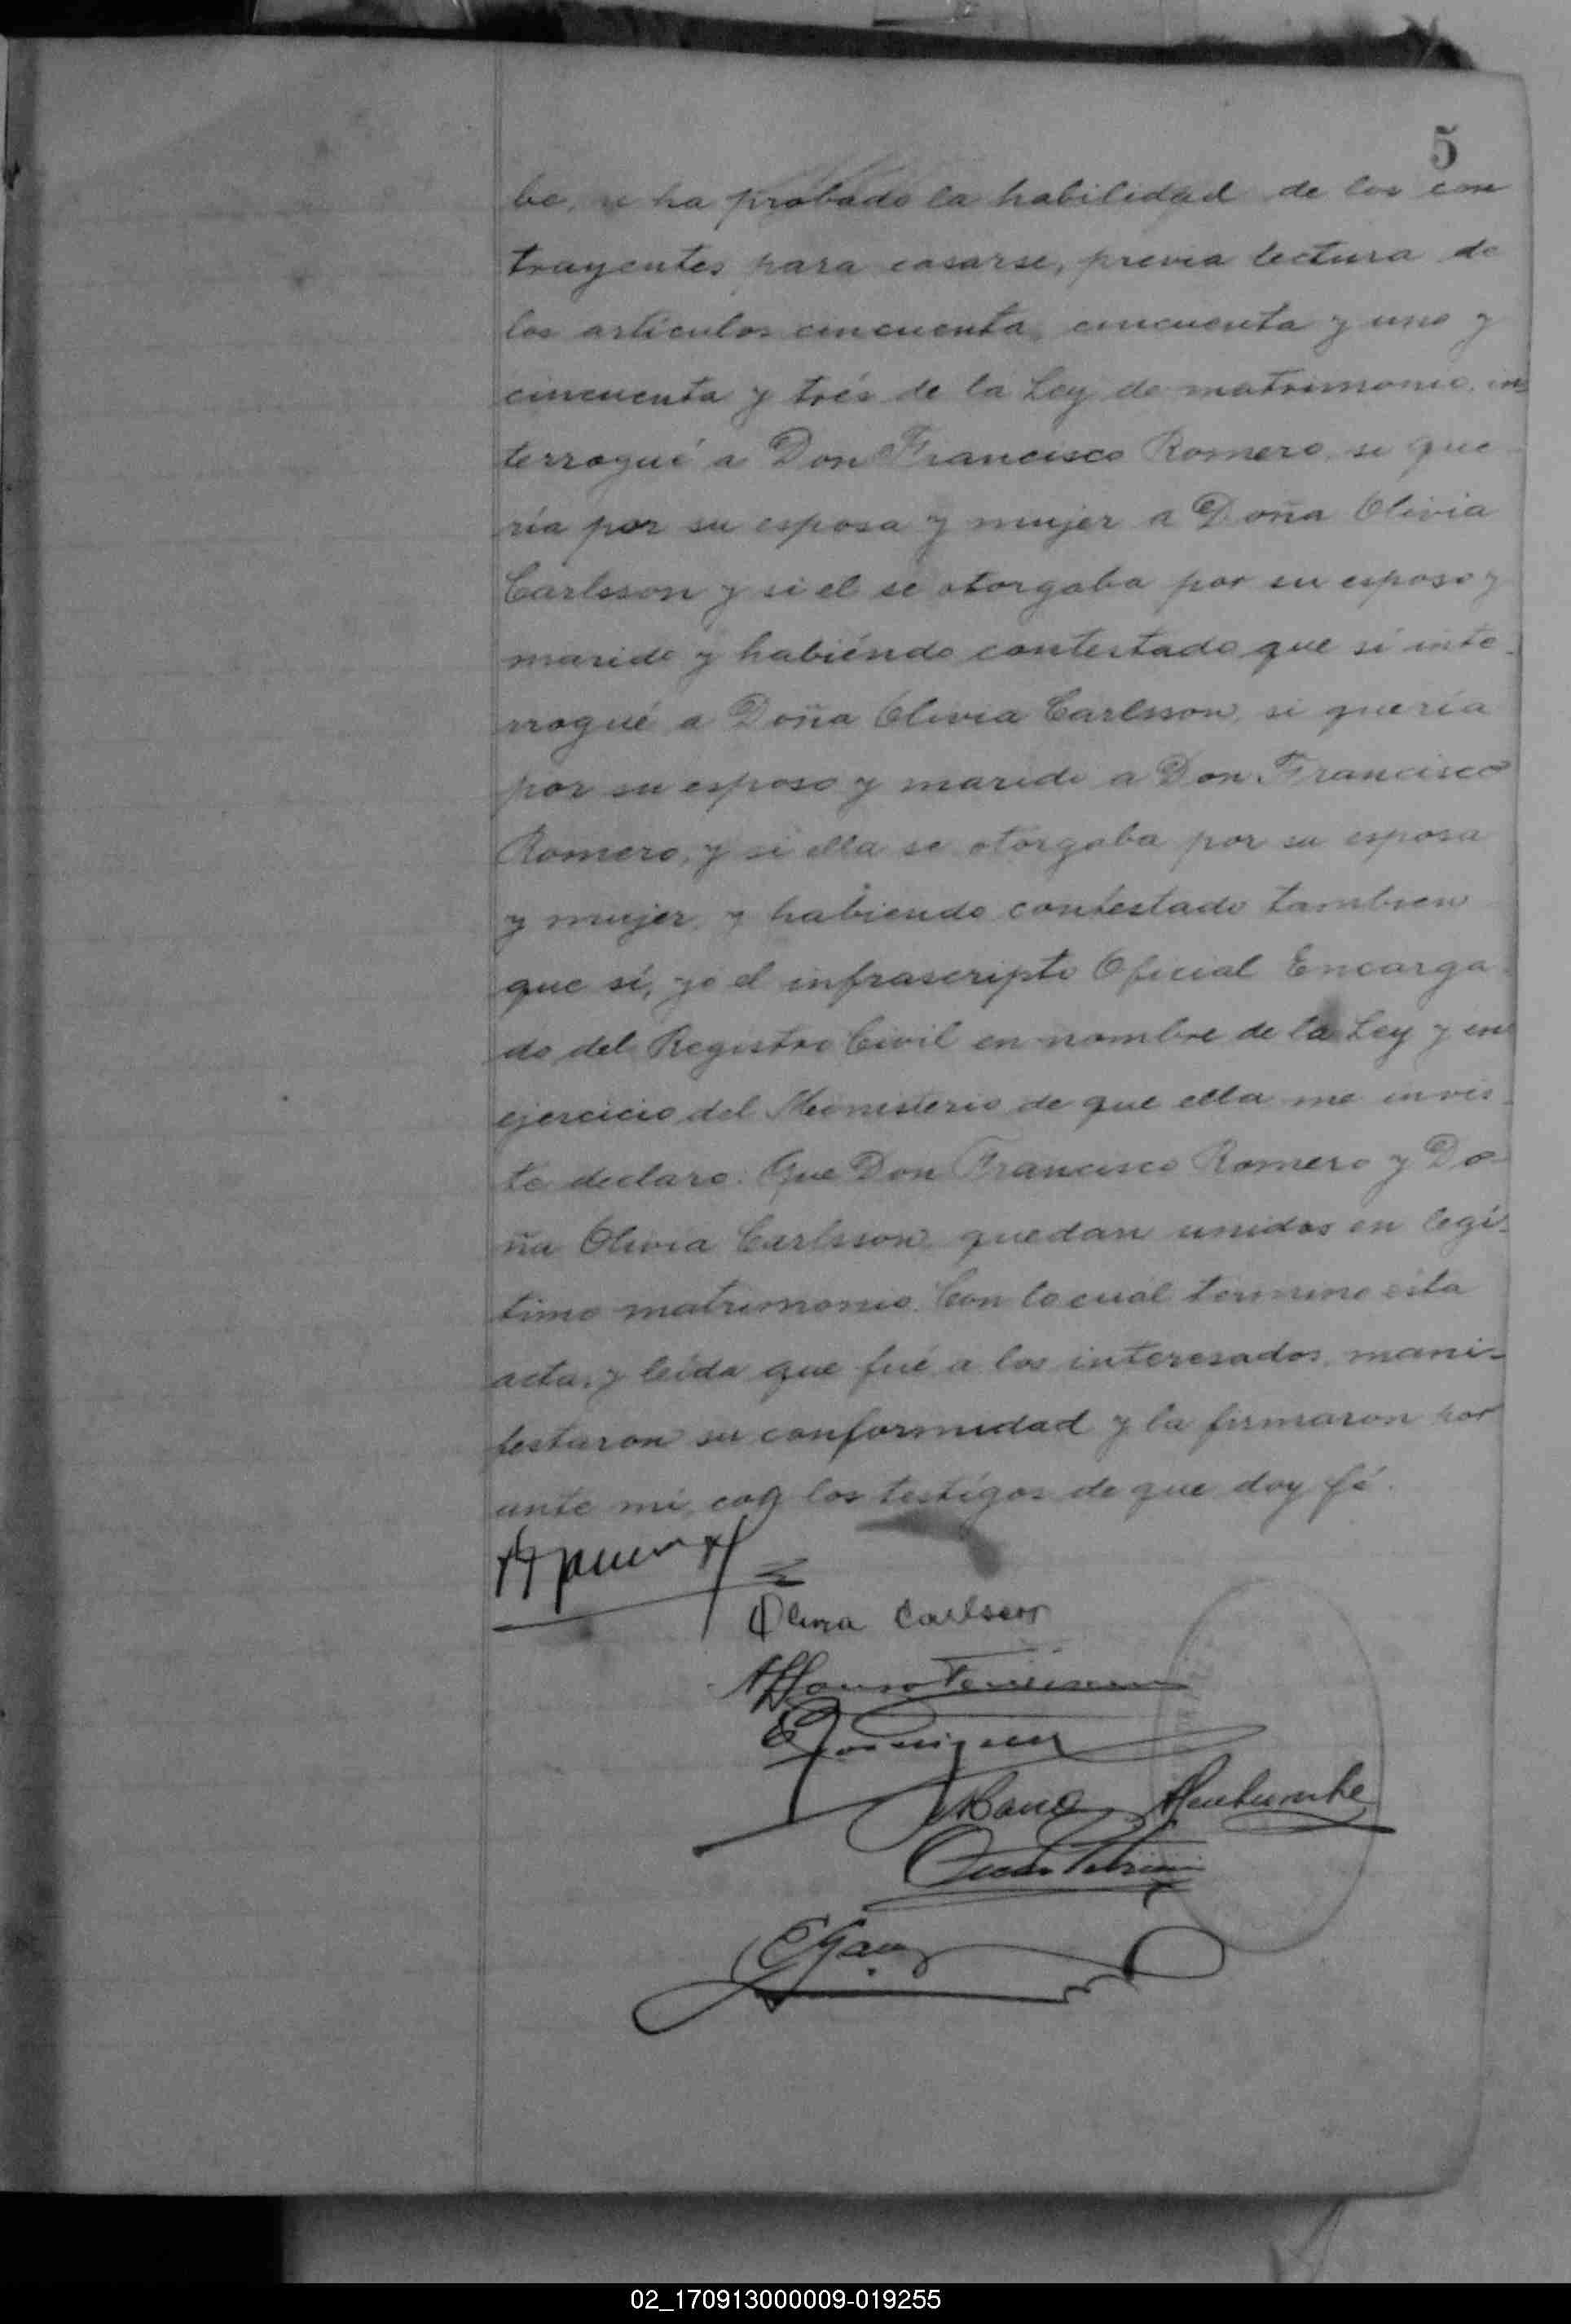 5
be, se ha probado la habilidad de los con
trayentes para casarse, previa lectura de
los artículos cincuenta, cincuenta y uno y
cincuenta y trés de la Ley de matrimonio, in
terrogué a Don Francisco Romero, si que
ría por su esposa y mujer a Doña Olivia
Carlsson y si el se otorgaba por su esposo y
marido y habiéndo contestado que sí inte-
rrogué a Doña Olivia Carlsson, si quería
por su esposo y marido a Don Francisco
Romero, y si ella se otorgaba por su esposa
y mujer, y habiendo contestado tambien
que sí, yo el infrascripto Oficial Encarga
do del Registro Civil en nombre de la Ley y en
ejercicio del Ministerio de que ella me invis-
te declaro: Que Don Francisco Romero y Do-
ña Olivia Carlsson, quedan unidos en legí-
timo matrimonio. Con lo cual termino esta
acta, y leída que fué a los interesados, mani-
festaron su conformidad y la firmaron por
ante mi, con los testígos de que doy fé.
Olivia Carlsson
02_170913000009-019255